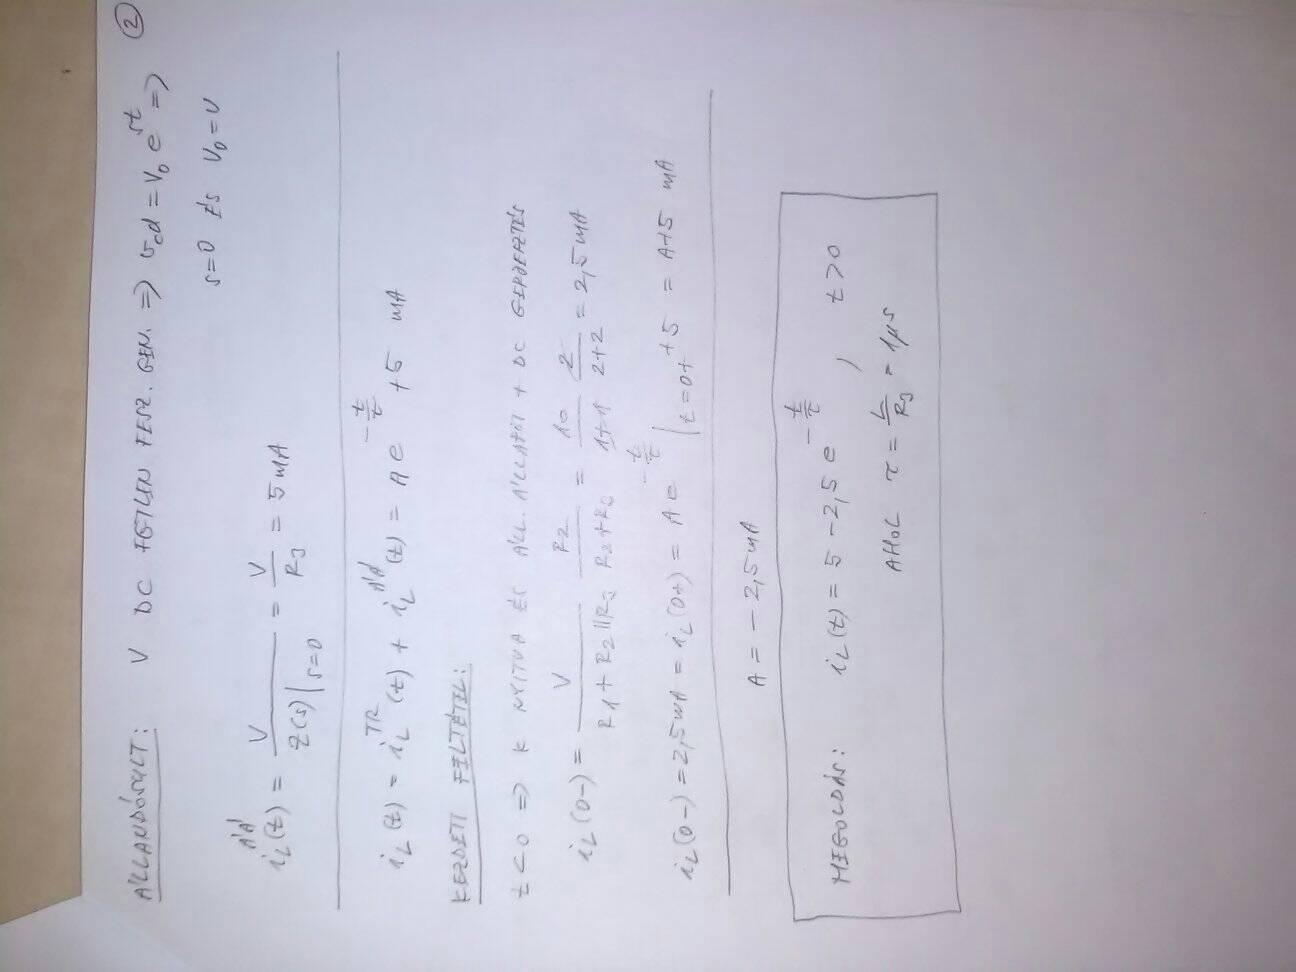 ②
ÁLLANDÓSULT: V DC FGTLEN FESZ. GEN. => v_cd = V_0 e^{st} =>
s=0 ÉS V_0 = V
i_L^{ÁÁ}(t) = V / Z(s)|_{s=0} = V / R_3 = 5 mA
i_L(t) = i_L^{TR}(t) + i_L^{ÁÁ}(t) = A e^{-t/τ} + 5 mA
KEZDETI FELTÉTEL:
t<0 => K NYITVA ÉS ÁLL. ÁLLAPOT + DC GERJESZTÉS
i_L(0-) = V / (R_1 + R_2||R_3) R_2 / (R_2+R_3) = 10 / (1+1) 2 / (2+2) = 2,5 mA
i_L(0-) = 2,5 mA = i_L(0+) = A e^{-t/τ} |_{t=0+} + 5 = A+5 mA
A = -2,5 mA
MEGOLDÁS: i_L(t) = 5 - 2,5 e^{-t/τ}, t>0
AHOL τ = L / R_3 = 1μs